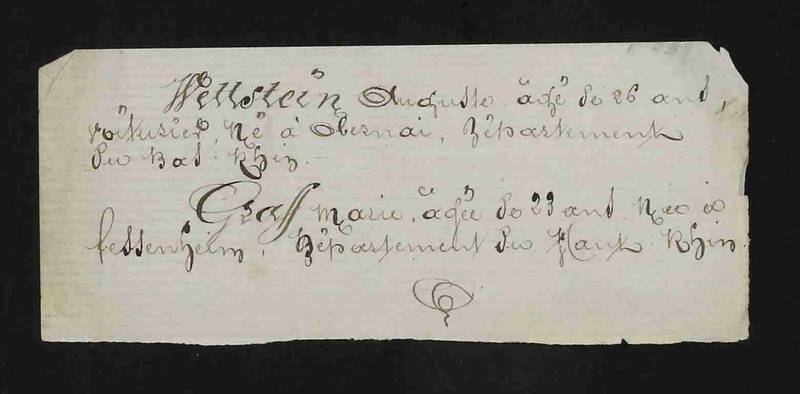 Wettstein Auguste âgé de 26 ans,
voiturier, Né à Obernai, Département
du Bas Rhin.
Graff Marie, âgée de 23 ans Née à
fessenheim, Département du Haut Rhin.